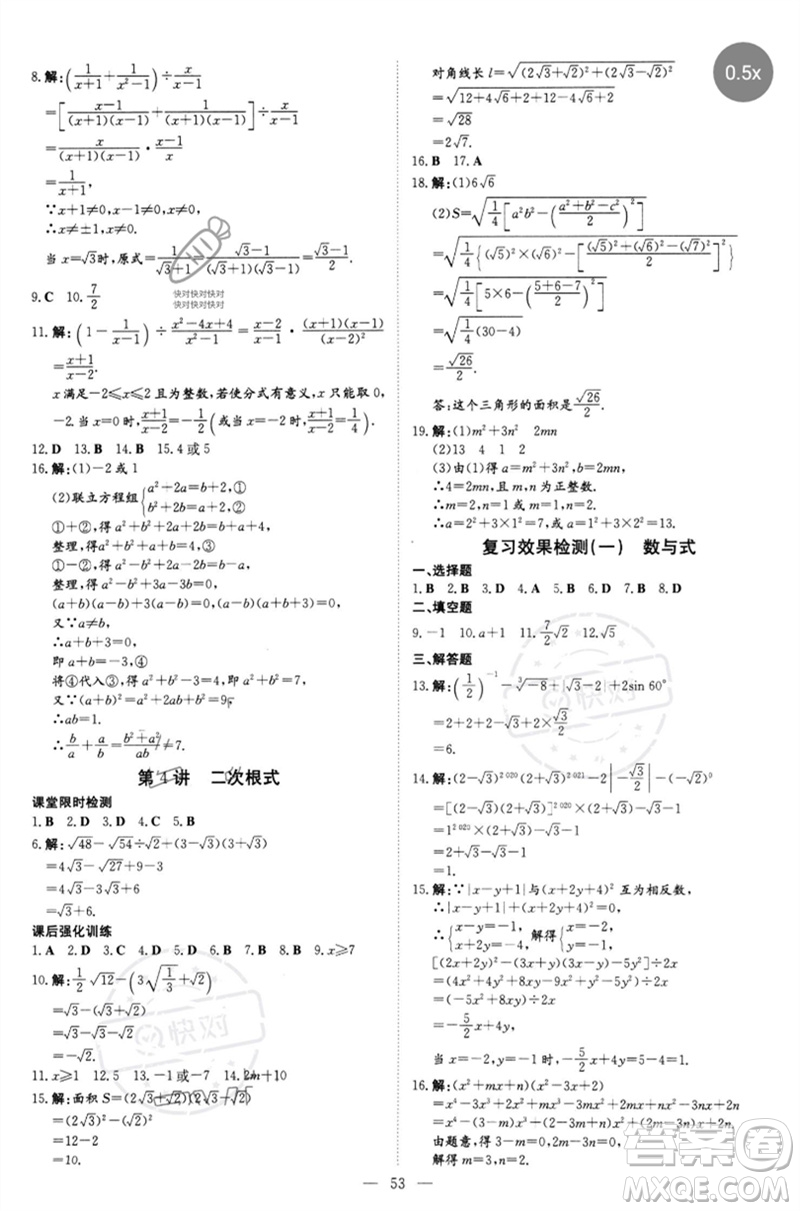 8.解:(1/(x+1)+1/(x²-1))÷x/(x-1)
=[(x-1)/((x+1)(x-1))+1/((x+1)(x-1))]÷x/(x-1)
=x/((x+1)(x-1))·(x-1)/x
=1/(x+1).
∵x+1≠0,x-1≠0,
∴x≠±1,x≠0.
当x=√3时,原式=1/(√3+1)=(√3-1)/((√3+1)(√3-1))=(√3-1)/2.
9.C 10.7/2
快对快对快对
快对快对快对
11.解:(1-1/(x-1))÷(x²-4x+4)/(x²-1)=(x-2)/(x-1)·((x+1)(x-1))/(x-2)²
=(x+1)/(x-2).
x满足-2≤x≤2且为整数,若使分式有意义,x只能取0,
-2.当x=0时,(x+1)/(x-2)=-1/2(或当x=-2时,(x+1)/(x-2)=1/4).
12.D 13.B 14.B 15.4或5
16.解:(1)-2或1
(2)联立方程组{a²+2a=b+2,① b²+2b=a+2,②
①+②,得a²+b²+2a+2b=b+a+4,
整理,得a²+b²+a+b=4,③
①-②,得a²-b²+2a-2b=b-a,
整理,得a²-b²+3a-3b=0,
(a+b)(a-b)+3(a-b)=0,
(a-b)(a+b+3)=0,
又∵a≠b,
∴a+b+3=0,
即a+b=-3,④
将④代入③,得a²+b²-3=4,即a²+b²=7,
又∵(a+b)²=a²+2ab+b²=9,
∴ab=1.
∴b/a+a/b=(b²+a²)/ab=7.
第4讲 二次根式
课堂限时检测
1.B 2.D 3.D 4.C 5.B
6.解:√48-√54÷√2+(3-√3)(3+√3)
=4√3-√27+9-3
=4√3-3√3+6
=√3+6.
课后强化训练
1.A 2.D 3.D 4.A 5.B 6.D 7.B 8.B 9.x≥7
10.解:1/2√12-(3√(1/3)+√2)
=√3-(√3+√2)
=√3-√3-√2
=-√2.
11.x≥1 12.5 13.-2a 14.2m+10
15.解:面积S=(2√3+√2)(2√3-√2)
=(2√3)²-(√2)²
=12-2
=10.
对角线长l=√((2√3+√2)²+(2√3-√2)²)
=√(12+4√6+2+12-4√6+2)
=√28
=2√7.
16.B 17.A
18.解:(1)6√6
(2)S=√(1/4[a²b²-((a²+b²-c²)/2)²])
=√(1/4{(√5)²×(√6)²-[((√5)²+(√6)²-(√7)²)/2]²})
=√(1/4[5×6-((5+6-7)/2)²])
=√(1/4(30-4))
=√26/2.
答:这个三角形的面积是√26/2.
19.解:(1)m²+3n² 2mn
(2)13 4 1 2
(3)由(1)得a=m²+3n²,b=2mn,
∴4=2mn,且m,n为正整数.
∴m=2,n=1或m=1,n=2.
∴a=2²+3×1²=7,或a=1²+3×2²=13.
复习效果检测(一) 数与式
一、选择题
1.B 2.B 3.D 4.A 5.C 6.D 7.B 8.D
二、填空题
9.-1 10.a+1 11.7/2√2 12.√5
三、解答题
13.解:(1/2)⁻¹-∛-8+|√3-2|+2sin 60°
=2+2+2-√3+2×√3/2
=6.
14.解:(2-√3)²⁰²⁰(2+√3)²⁰²¹-2|-√3/2|-(-√2)⁰
=[(2-√3)(2+√3)]²⁰²⁰×(2+√3)-√3-1
=1²⁰²⁰×(2+√3)-√3-1
=2+√3-√3-1
=1.
15.解:∵|x-y+1|与(x+y+3)²互为相反数,
∴|x-y+1|+(x+y+3)²=0,
∴{x-y=-1, x+y=-3, 解得{x=-2, y=-1.
[(2x-y)²-(2x+y)(x-y)-2y²]÷(-1/2x)
=(4x²-4xy+y²-2x²+xy+y²-2y²)÷(-1/2x)
当x=-2,y=-1时,
16.解:(x²+mx+n)(x²-3x+4)
=x⁴-3x³+4x²+mx³-3mx²+4mx+nx²-3nx+4n
由题意,得3-m=0,4-3m+n=0,
解得m=3,n=5.
53
0.5x
快对
答案圈
MXQE.COM